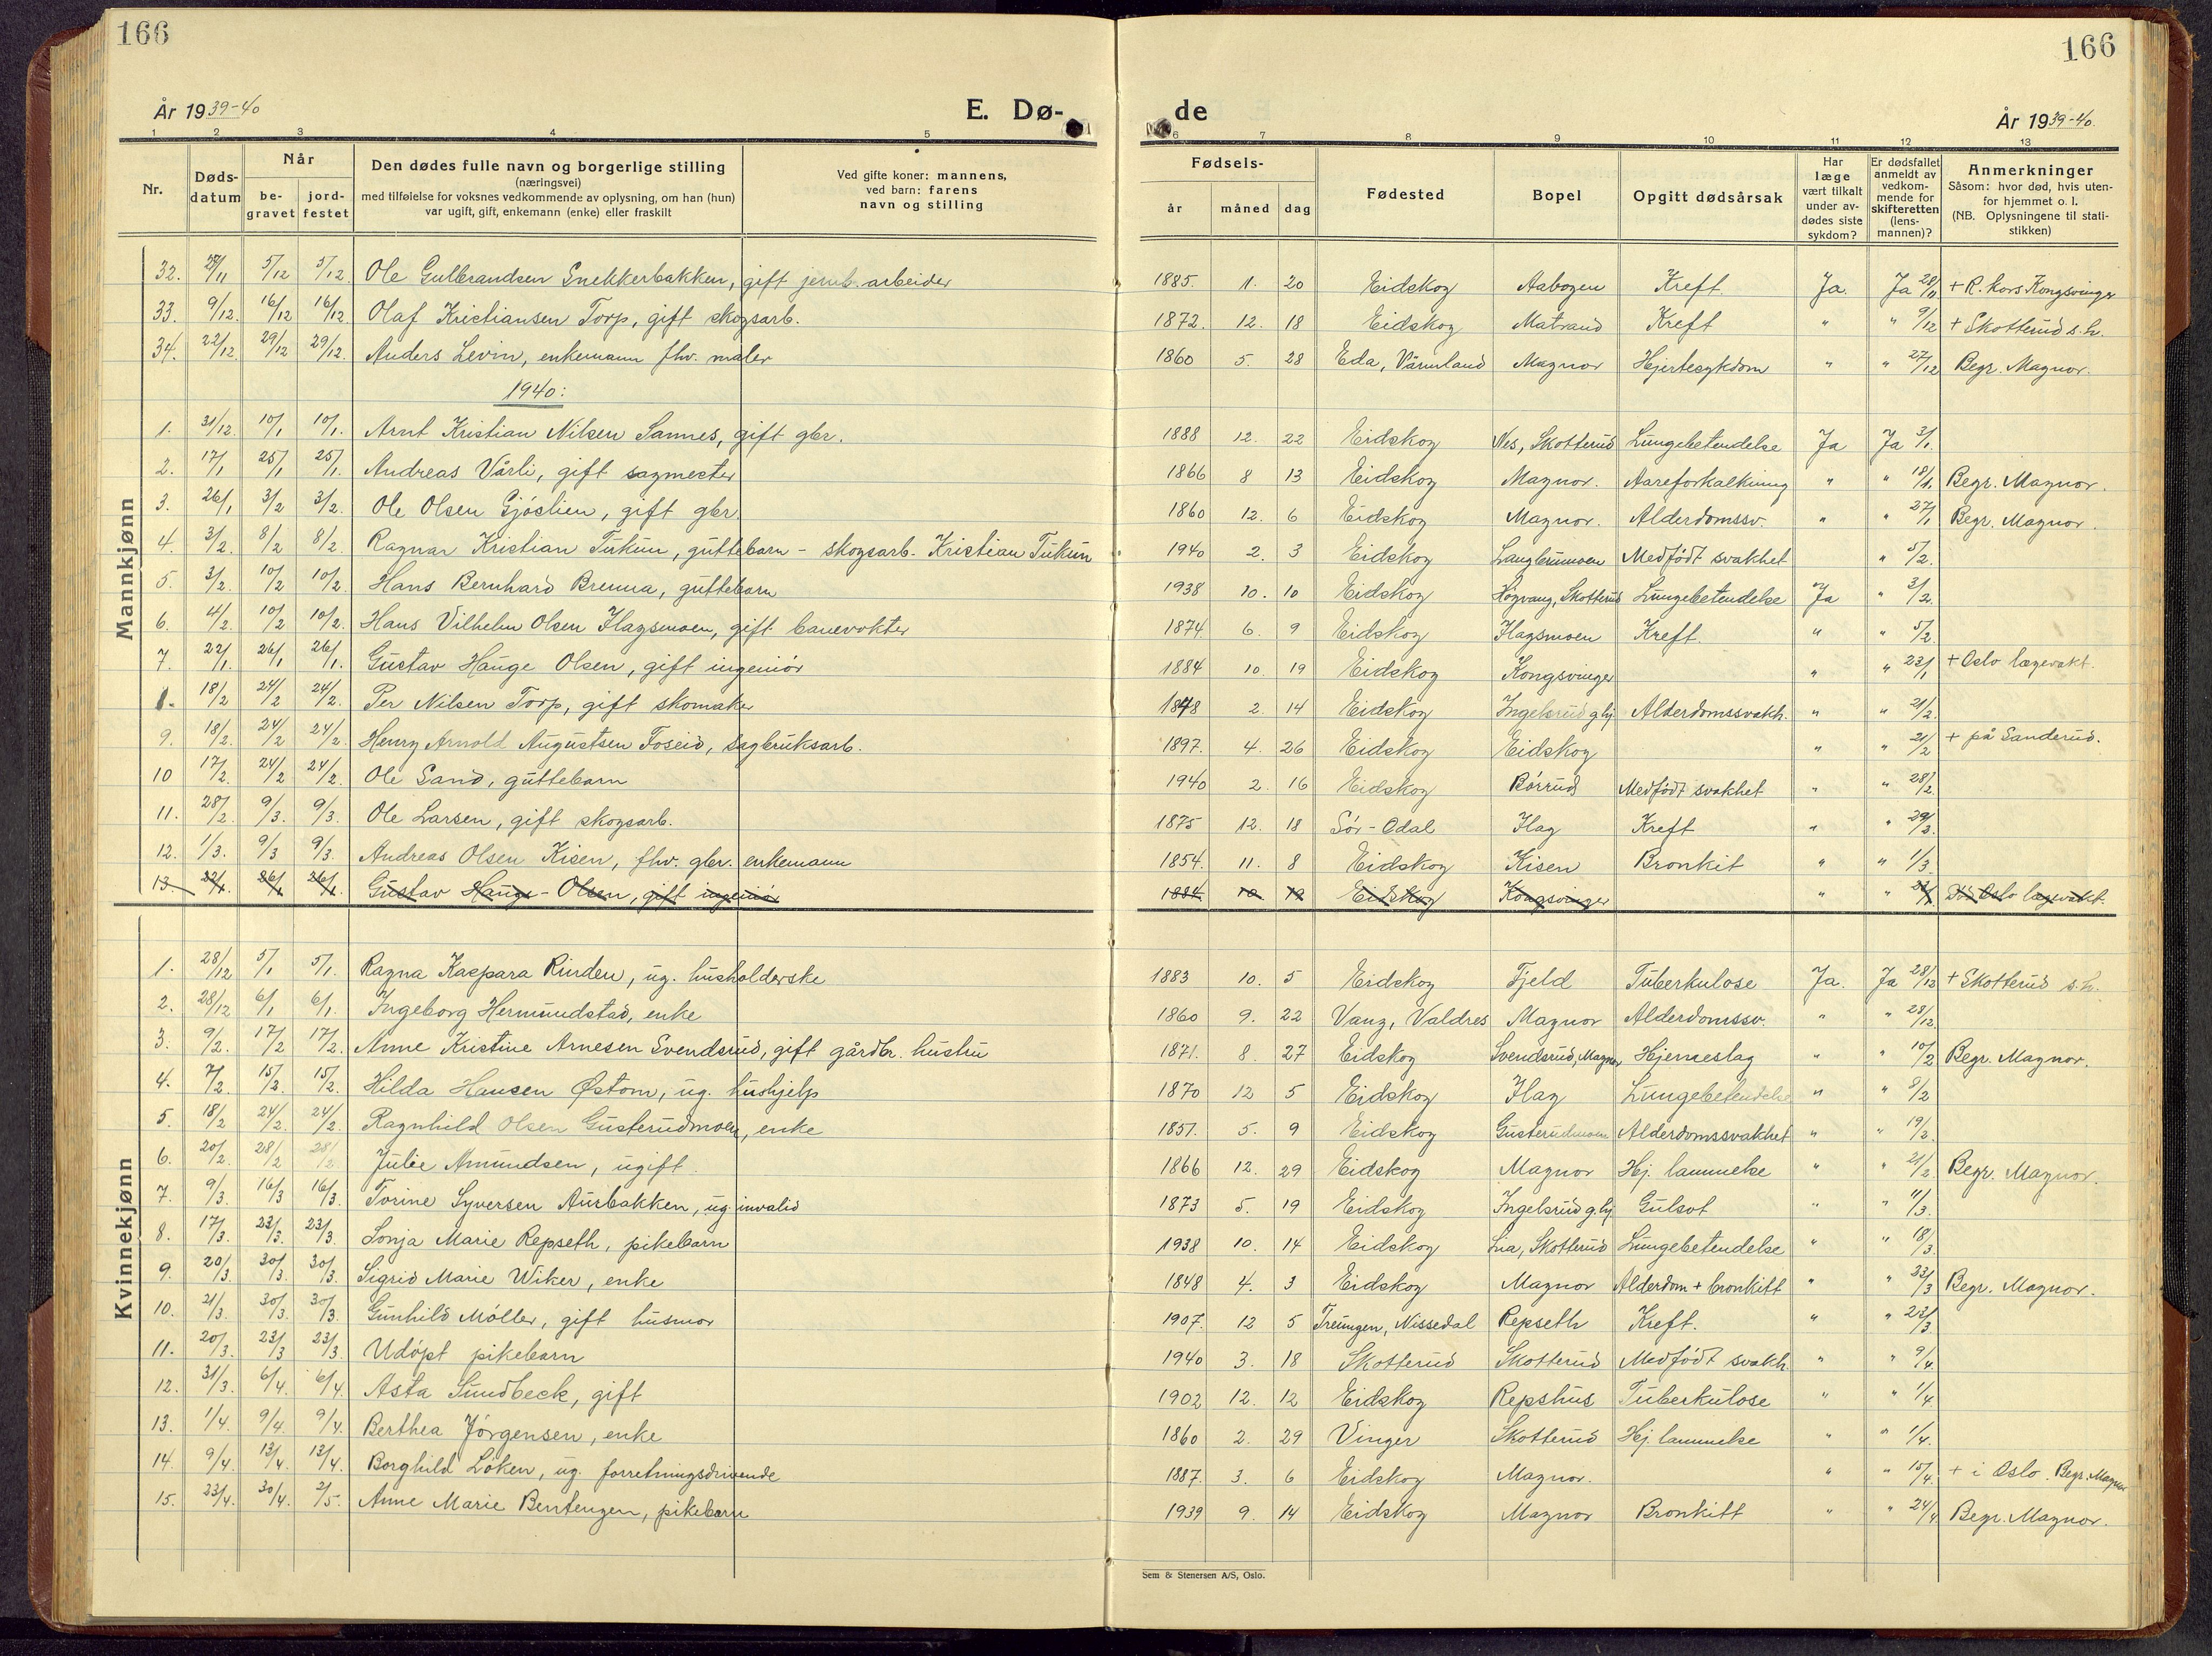 166
166
År 1939-40
E. Dø-
de
År 1939-40.
1 2 3 4 5 6 7 8 9 10 11 12 13
Nr.
Døds-
datum
Når
be-
gravet
jord-
festet
Den dødes fulle navn og borgerlige stilling
(næringsvei)
med tilføielse for voksnes vedkommende av oplysning, om han (hun)
var ugift, gift, enkemann (enke) eller fraskilt
Ved gifte koner: mannens,
ved barn: farens
navn og stilling
Fødsels-
år
måned
dag
Fødested
Bopel
Opgitt dødsårsak
Har
læge
vært tilkalt
under av-
dødes siste
sykdom?
Er dødsfallet
anmeldt av
vedkom-
mende for
skifteretten
(lens-
mannen)?
Anmerkninger
Såsom: hvor død, hvis uten-
for hjemmet o. l.
(NB. Oplysningene til stati-
stikken)
Mannkjønn
32. 27/11 5/12 5/12 Ole Gulbrandsen Snekkerbakken, gift jernb. arbeider 1885. 1. 20 Eidskog Aabogen Kreft Ja. Ja 28/11 + R. kors Kongsvinger
33. 9/12 16/12 16/12 Olaf Kristiansen Torp, gift skogsarb. 1872. 12. 18 Eidskog Matrand Kreft " " 9/12 + Skotterud s.h.
34. 22/12 29/12 29/12 Anders Levin, enkemann fhv. maler 1860 5. 28 Eda, Värmland Magnor Hjertesykdom " " 27/12 Begr. Magnor.
1940:
1. 31/12 10/1 10/1 Arnt Kristian Nilsen Sannes, gift gbr. 1888 12. 22 Eidskog Nes, Skotterud Lungebetendelse Ja Ja 3/1.
2. 17/1 25/1 25/1 Andreas Vårli, gift sagmester 1866 8 13 Eidskog Magnor. Aareforkalkning " " 18/1. Begr. Magnor.
3. 26/1 3/2 3/2. Ole Olsen Gjöslien, gift gbr. 1860 12. 6 Eidskog Magnor. Alderdomssv. " " 27/1 Begr. Magnor.
4. 3/2. 8/2 8/2 Ragnar Kristian Tukun, guttebarn - skogsarb. Kristian Tukun 1940 2. 3 Eidskog Langbrumoen Medfödt svakhet " 5/2.
5. 3/2. 10/2 10/2 Hans Bernhard Brenna, guttebarn 1938 10. 10 Eidskog Hogvang, Skotterud Lungebetendelse Ja " 3/2.
6. 4/2. 10/2 10/2. Hans Vilhelm Olsen Flagsmoen, gift banevokter 1874 6. 9 Eidskog Flagsmoen Kreft. " " 5/2.
7. 22/1. 26/1 26/1. Gustav Hauge Olsen, gift ingeniör 1884 10. 19 Eidskog Kongsvinger " " 23/1 + Oslo lægevakt.
18/2 24/2 24/2 Per Nilsen Torp, gift skomaker 1848 2. 14 Eidskog Ingelsrud g.hj. Alderdomssvakh. " " 21/2.
9. 18/2. 24/2 24/2. Henry Arnold Augustsen Foseid, sagbruksarb. 1897. 4. 26 Eidskog Eidskog " " 21/2 + på Sanderud.
10 17/2. 24/2 24/2. Ole Sand, guttebarn 1940 2. 16 Eidskog Börrud Medfödt svakhet " " 28/2.
11. 28/2 9/3. 9/3. Ole Larsen, gift skogsarb. 1875 12. 18 Sör-Odal Flag Kreft " " 29/2.
12. 1/3. 9/3 9/3. Andreas Olsen Kisen, fhv. gbr. enkemann 1854. 11. 8 Eidskog Kisen Bronkit " " 1/3.
13. 22/1. 26/1 26/1. Gustav Hauge-Olsen, gift ingeniör 1884. 10 19 Eidskog Kongsvinger " " 23/1 Död Oslo lægevakt.
Kvinnekjønn
1. 28/12 5/1 5/1. Ragna Kaspara Rinden, ug. husholderske 1883 10. 5 Eidskog Fjeld Tuberkulose Ja. Ja 28/12 + Skotterud s.h.
2. 28/12 6/1 6/1. Ingeborg Hermundstad, enke 1860 9. 22 Vang, Valdres Magnor Alderdomssv. " " 28/12.
3. 9/2. 17/2 17/2. Anne Kristine Arnesen Svendsrud, gift gårdbr. hustru 1871. 8. 27 Eidskog Svendsrud, Magnor Hjerneslag " " 10/2 Begr. Magnor.
4. 7/2. 15/2. 15/2. Hilda Hansen Østom, ug. hushjelp 1870 12 5 Eidskog Flag Lungebetendelse " " 8/2
5. 18/2 24/2. 24/2. Ragnhild Olsen Gusterudmoen, enke 1851. 5. 9 Eidskog Gusterudmoen Alderdomssvakhet " " 19/2.
6. 20/2. 28/2 28/2 Julie Amundsen, ugift. 1866 12. 29 Eidskog Magnor Hj. lammelse " " 21/2 Begr. Magnor.
7. 9/3 16/3 16/3 Torine Syversen Aurbakken, ug. invalid 1873 5. 19 Eidskog Ingelsrud g.hj. Gulsot " " 11/3.
8. 17/3. 23/3. 23/3. Sonja Marie Repseth, pikebarn 1938 10. 14 Eidskog Lia, Skotterud Lungebetendelse " " 18/3
9. 20/3. 30/3. 30/3. Sigrid Marie Wiker, enke 1848 4. 3 Eidskog Magnor Alderdom + bronkitt " " 23/3 Begr. Magnor.
10. 21/3. 30/3. 30/3. Gunhild Möller, gift husmor 1907. 12 5 Treungen, Nissedal Repseth Kreft. " " 23/3.
11. 20/3. 23/3 23/3. Udöpt pikebarn 1940 3. 18 Skotterud Skotterud Medfödt svakh. " " 9/4.
12. 31/3. 6/4. 6/4. Asta Sundbeck, gift 1902 12. 12 Eidskog Repshus Tuberkulose " " 1/4
13. 1/4. 9/4. 9/4. Berthea Jörgensen, enke 1860 2. 29 Vinger Skotterud Hj. lammelse " " 1/4.
14. 9/4. 13/4. 13/4. Borghild Löken, ug. forretningsdrivende 1887. 3. 6 Eidskog Magnor. " " 15/4. + i Oslo. Begr. Magnor
15. 23/4. 30/4. 2/5. Anne Marie Bentengen, pikebarn 1939 9. 14 Eidskog Magnor Bronkitt " " 24/4 Begr. Magnor.
Sem & Stenersen A/S, Oslo.